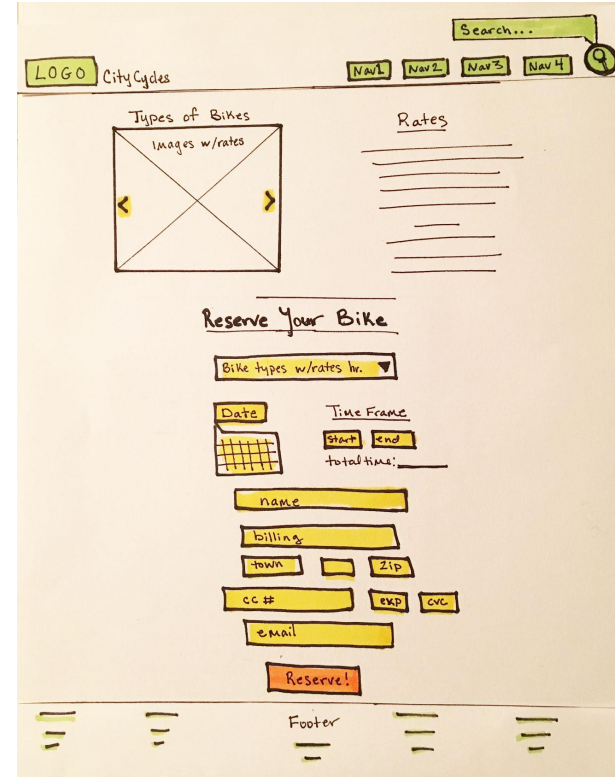 Search...
LOGO CityCycles
Nav1 Nav2 Nav3 Nav4
Types of Bikes
Images w/rates
< >
Rates
Reserve Your Bike
Bike types w/rates hr.
Date
Time Frame
start end
total time:
name
billing
town Zip
cc # exp cvc
email
Reserve!
Footer